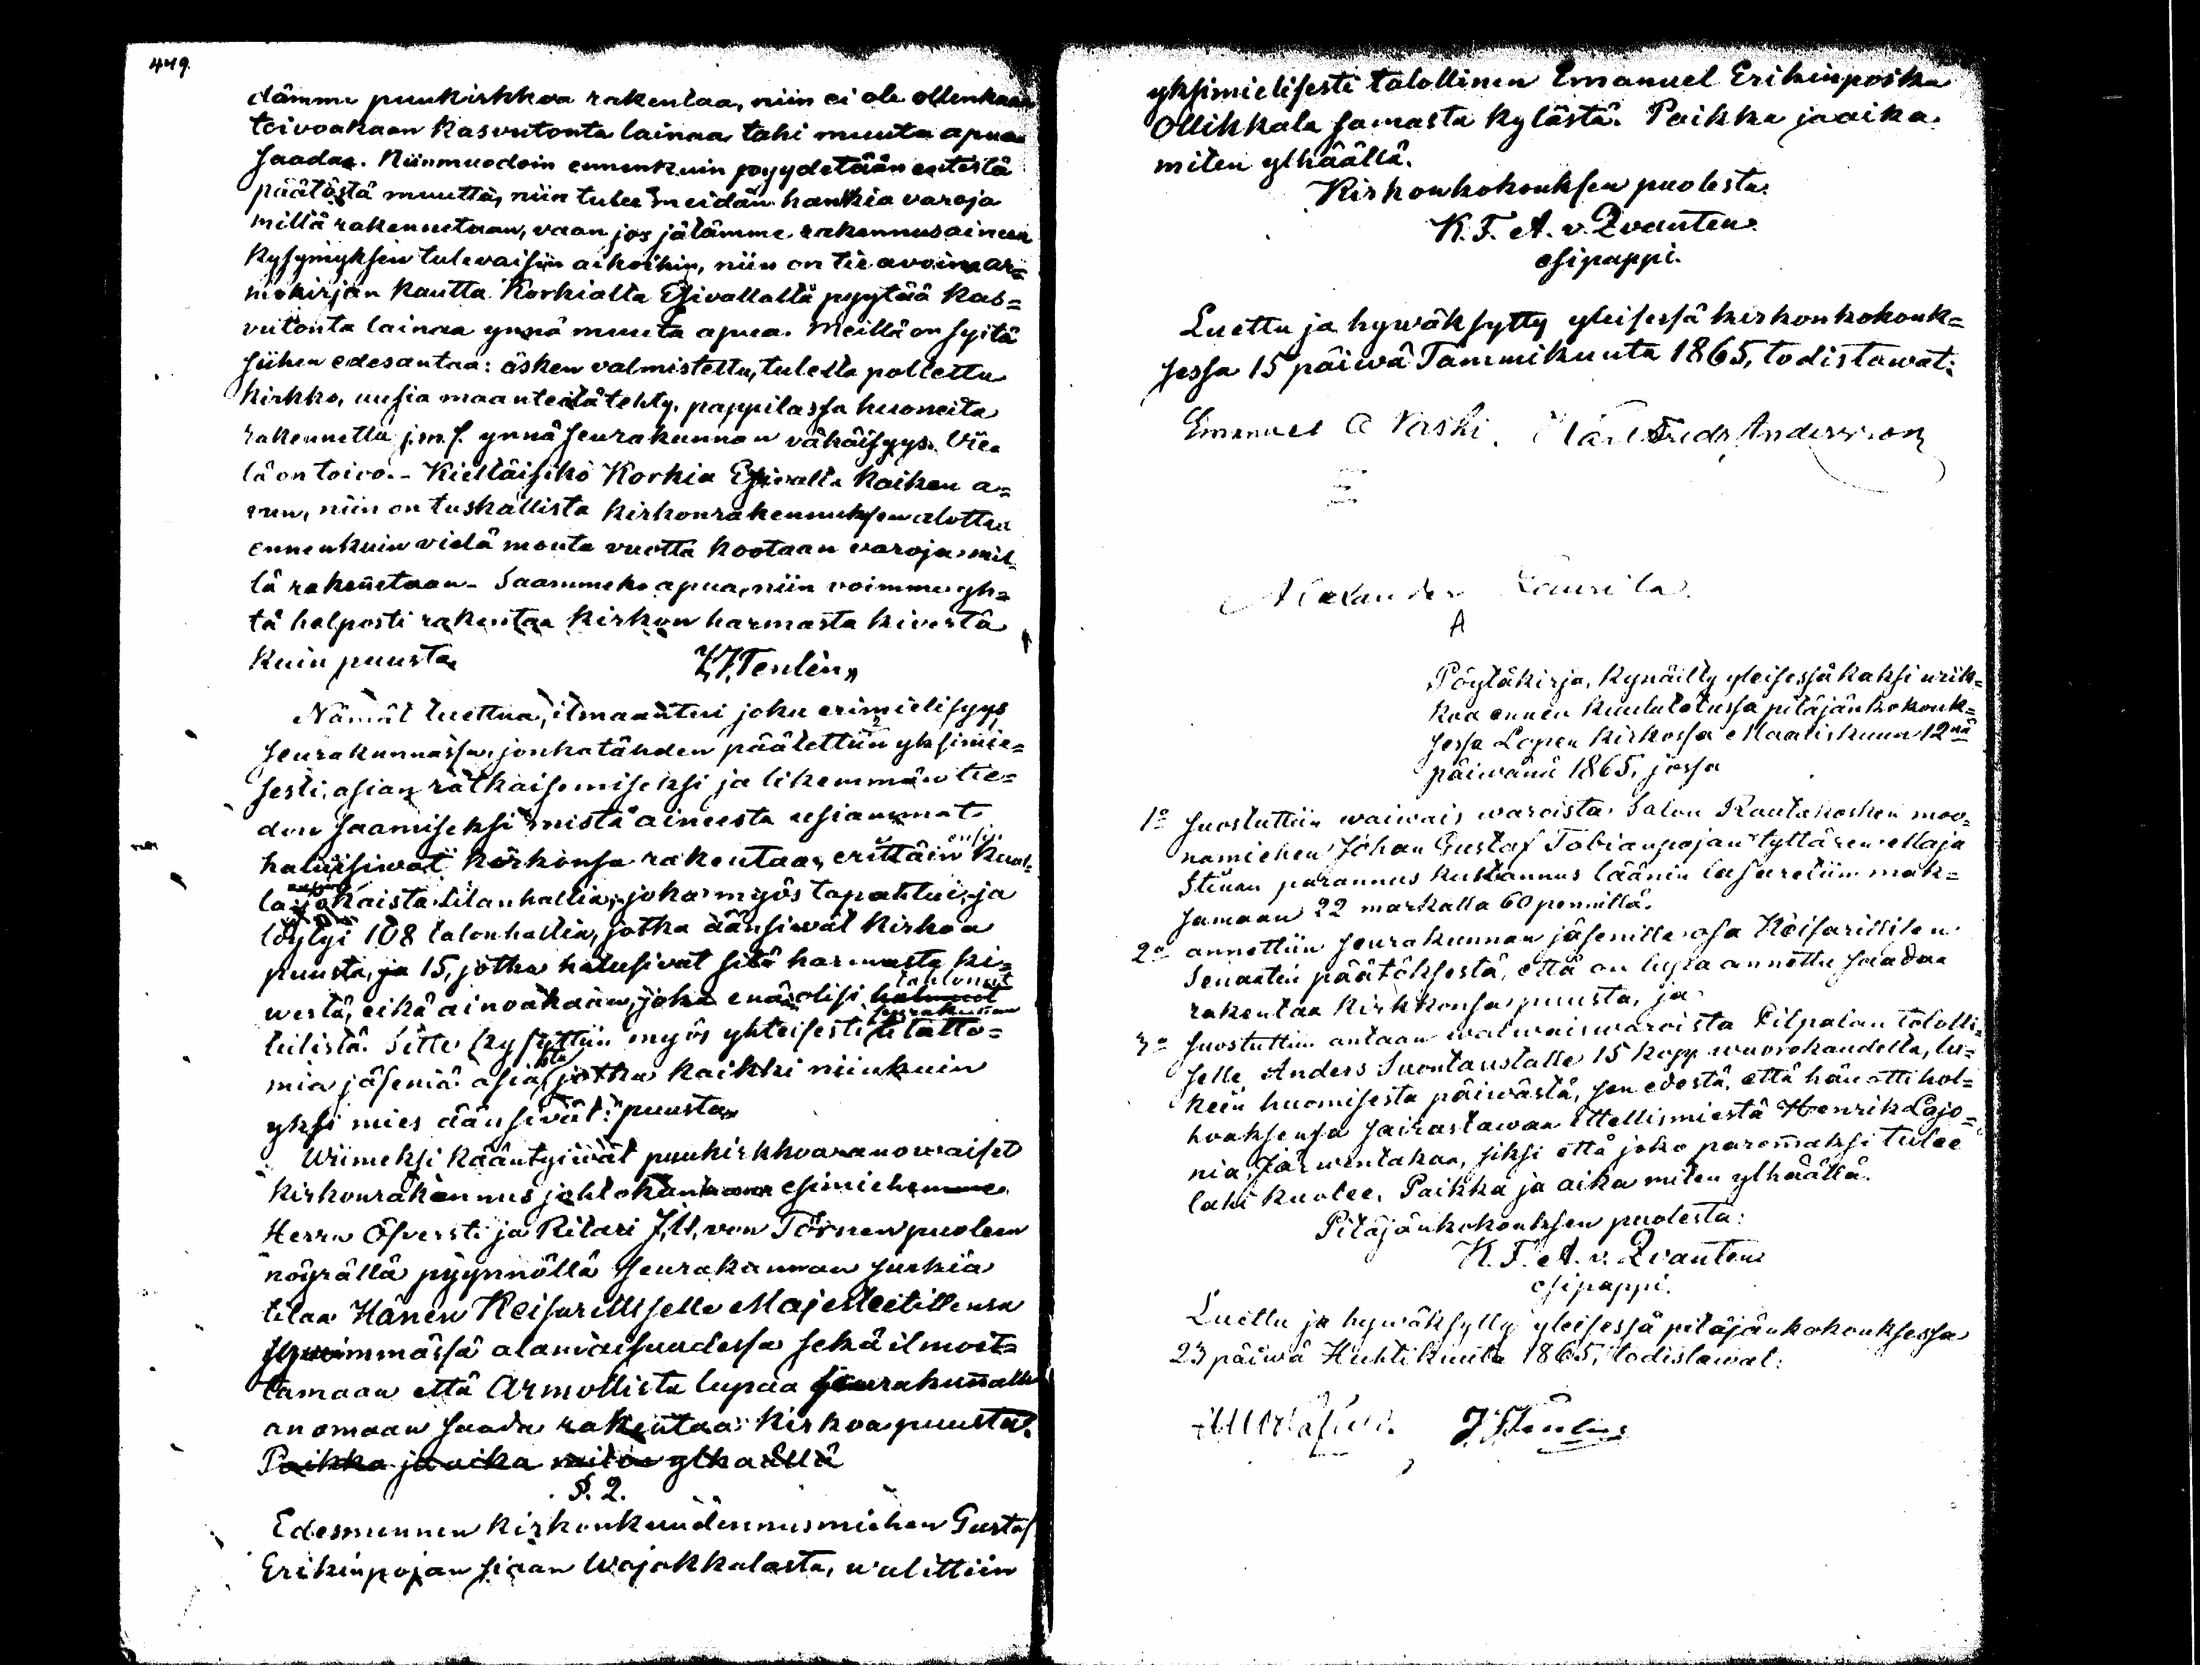 449.
dämme puukirkkoa rakentaa, niin ei ole ollenkaan
toivoakaan kasvutonta lainaa tahi muuta apua
saadaa. Niinmuodoin ennenkuin pyydetään entestä
päätöstä muuttaa, niin tulee meidän hankkia varoja
millä rakennetaan, vaan jos jätämme rakennusaineen
kysymyksen tulevaisiin aikoihin, niin on tie avoin ar=
mokirjan kautta Korkialta Esivallalta pyytää kas=
vutonta lainaa ynnä muuta apua. Meillä on syitä
siihen edesantaa: äsken valmistettu, tulella poltettu
kirkko, uusia maanteitä tehty, pappilassa huoneita
rakennettu j.m.s. ynnä seurakunnan vähäisyys. Vie=
lä on toivo. - Kieltäisikö Korkia Esivalta kaiken a=
vun, niin on tuskallista kirkonrakennuksen alottaa
ennenkuin vielä monta vuotta kootaan varoja mil=
lä rakennetaan - Saammeko apua, niin voimme yh=
tä helposti rakentaa kirkon harmasta kivestä
kuin puusta.
Tenlén„
Nämät luettua, ilmaantui joku erimielisyys
seurakunnassa, jonkatähden päätettiin yksimie=
sesti, asian ratkaisemiseksi ja likemmän tie=
don saamiseksi mistä aineesta useammat
ensin
halusisiwat kirkonsa rakentaa, erittäin kuul=
la jokaista tilanhaltia, joka myös tapahtui, ja
löytyi 108 talonhaltia, jotka äänsiwät kirkoa
puusta, ja 15, jotka halusivat sitä harmasta ki=
tahtonut
westä, eikä ainoakaan, joka enää olisi halunnut
seurakunnan
tiilistä. Sitte kysyttiin myös yhteisesti tilatto=
sta
mia jäseniä asia, jotka kaikki niinkuin
yksi mies äänsivät: "puusta„
Wiimeksi kääntyiwät puukirkkoa anowaiset
kirkonrakennus johtokunnan esimiehemme
Herra Öfversti ja Ritari von Törnen puoleen
nöyrällä pyynnöllä seurakunnan surkia
tilaa Hänen Keisarilliselle Majesteetillensa
syvimmässä alamaisuudessa sekä ilmoit=
tamaan että Armollista lupaa seurakunnalle
anomaan saada rakentaa kirkoa puusta.
Paikka ja aika miten ylhäällä
§. 2.
Edesmennen kirkonkuudennusmiehen Gustaf
Erikinpojan siaan Wojakkalasta, walittiin
yksimielisesti talollinen Emanuel Erikinpoika
Ollikkala samasta kylästä. Paikka ja aika
miten ylhäällä.
Kirkonkokouksen puolesta:
K. F. A. v. Zvanten
esipappi.
Luettu ja hywäksytty yleisessä kirkonkokouk=
sessa 15 päiwä Tammikuuta 1865, todistawat:
Emanuel Andersson
Alexander Laurila.
A
Pöytäkirja, kynäilty yleisessä kaksi wiik=
koa ennen kuulutetussa pitäjänkokouk=
sessa Lopen kirkossa Maaliskuun 12nä
päiwänä 1865, jossa
1o suostuttiin waiwais waroista Salon Rautakosken moo=
namiehen Johan Gustaf Tobianpojan tyttären ellaja
Stiinan parannus kustannus läänin lasaretiin mak=
samaan 22 markalla 60 pennillä.
2o annettiin seurakunnan jäsenille osa Keisarillisen
Senaatin päätöksestä, että on lupa annettu saadaa
rakentaa kirkkonsa puusta, ja
3o suostuttiin antaan waiwaiswaroista Pilpalan tololli=
selle Anders Suontaustalle 15 kapp wuorokaudelta, lu=
kein huomisesta päiwästä, sen edestä, että hän otti hol=
hoaksensa sairastawan ittellismiestä Henrik Lojo=
nia Järwentakaa, siksi että joko paremmaksi tulee
tahi kuolee. Paikka ja aika miten ylhäällä.
Pitäjänkokouksen puolesta:
K. F. A. v. Zvanten
esipappi.
Luettu ja hywäksytty yleisessä pitäjänkokouksessa
23 päiwä Huhtikuuta 1865, todistawat: